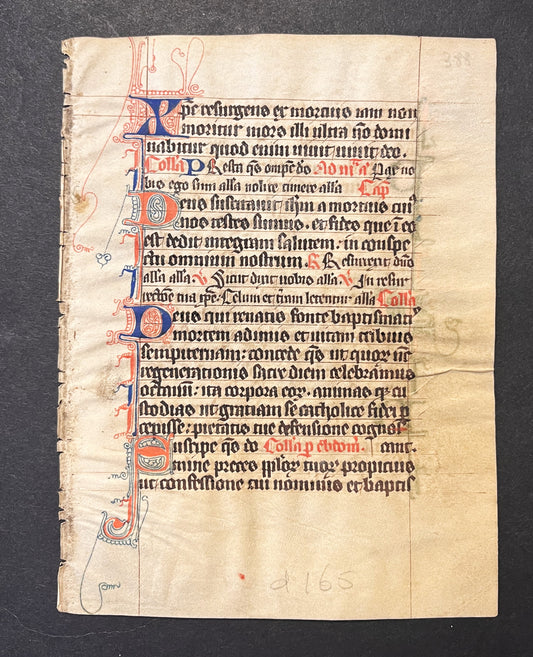 388
Xpe resurgens ex mortuis iam non
moritur mors illi ultra no domi
nabitur quod enim uiuit uiuit deo.
Colla Presta qs omps do Ad mag a Pax uo
bis ego sum alla nolite timere alla Cap
Deus suscitauit ihm a mortuis cui
nos testes sumus. et fides que i eo
est dedit integram salutem: in conspe
ctu omnium nostrum. R Resurrexit dns
alla alla. V Sicut dixit uobis alla V In resur
rectoe tua xpe. Celum et tram letent alla Colla
Deus qui renatis fonte baptismatis
mortem adimis et uitam tribuis
sempiternam: concede qs ut quor
regenerationis sacre diem celebramus
octauu: ita corpora eor. animas q cu
stodias ut gratiam se catholice fidei p
cepisse: pietatis tue defensione cognos
Suscipe qs do Colla p ebdom. cant
mine preces pplor tuor propicius
ut confessione tui nominis et baptis
d 165